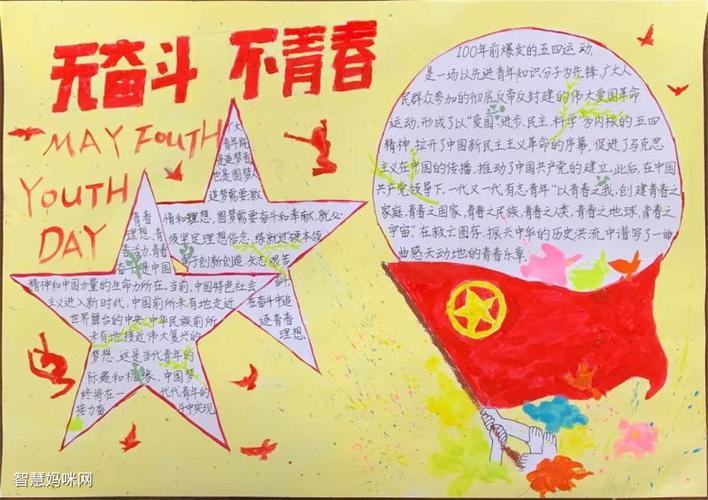 无奋斗 不青春
MAY FOUTH
YOUTH
DAY
广大
青年既
是追梦者,
也是圆梦人
追梦需要激
情和理想,圆梦需要奋斗和奉献,就必
须坚定理想信念,练就过硬本领
勇于创新创造
青春
理想,青
春活力,青春
奋斗,是中国
精神和中国力量的生命力所在,当前,中国特色社会
主义进入新时代,中国前所未有地走近
世界舞台的中央,中华民族前所
未有地接近伟大复兴的
梦想,这是当代青年的
际遇和机缘,中国梦
终将在一代代青年的
接力奋斗中实现
在奋斗中追
逐青春
理想.
100年前爆变的五四运动,
是一场以先进青年知识分子为先锋,广大人
民群众参加的彻底反帝反封建的伟大爱国革命
运动,形成了以“爱国,进步,民主,科学”为内核的五四
精神,拉开了中国新民主主义革命的序幕,促进了马克思
主义在中国的传播,推动了中国共产党的建立,此后,在中国
共产党领导下,一代又一代有志青年“以青春之我,创建青春之
家庭,青春之国家,青春之民族,青春之人类,青春之地球,青春之
宇宙”在救亡图存,振兴中华的历史洪流中谱写了一曲
曲感天动地的青春乐章.
智慧妈咪网